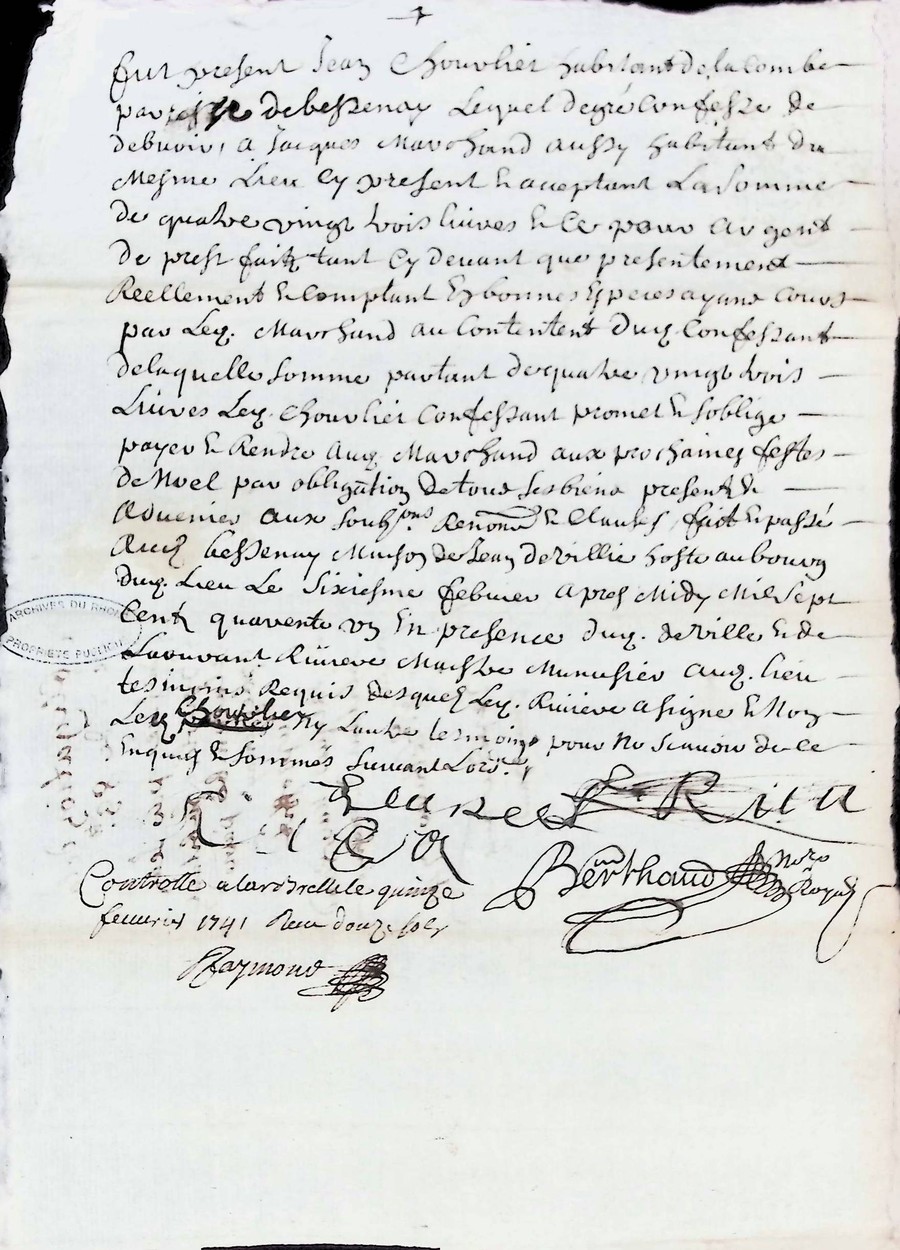 fut present Jean Chouvlier habitant de la Combe
parroisse de bessenay Lequel de gré Confesse de
debvoir a Jacques Marchand aussy habitant du
Mesme Lieu Cy present & acceptant La Somme
de quatre vingt trois livres & ce pour argent
de prest faitz tant Cy devant que presentement
Reellement & Comptant En bonnes Especes ayant Cours
par Ley. Marchand au Contentent duy. Confessant
de laquelle Somme partant de quatre vingt trois
Livres Ley. Chouvlier Confessant promet & soblige
payer & Rendre Auy. Marchand aux prochaines festes
de Noel par obligation de tous ses biens presents &
Advenirs aux soubons Renons & Clauses, fait & passé
Auy. bessenay Maison de Jean deville hoste au bourg
duy. Lieu Le Sixiesme febvrier apres Midy Mil Sept
Cents quarente un En presence duy. deville & de
Laurant Riviere Maistre Menusier auy. lieu
tesmoins Requis desquels Ley. Riviere a signe & Non
Ley. Chouvlier Ny Lautre tesmoins pour Ne Scavoir de ce
Enquis & Sommés Suivant Lors.
Riviere
Berthaud Nore
Royal
Controlle a larbrelle le quinze
fevrier 1741 Recu douze sols
Raymond
ARCHIVES DU RHONE
PROPRIETE PUBLIQUE